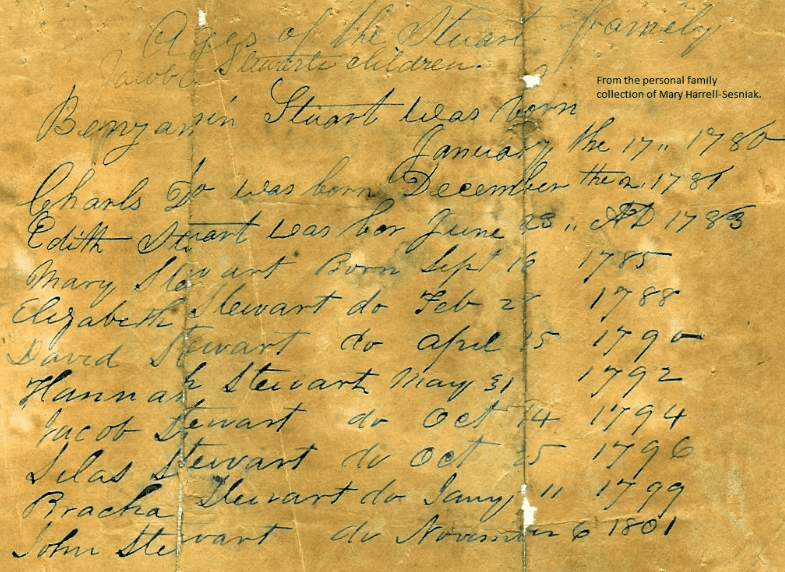 Ages of the Stuart Family
Jacob Stewarts children.
From the personal family
collection of Mary Harrell-Sesniak.
Benjamin Stuart was born
January the 17,, 1780
Charls Do was born December the 2,, 1781
Edith Stuart was bor June 23,, AD 1783
Mary Stewart Born Sept 16 1785
Elizabeth Stewart do Feb 1788
David Stewart do april 15 1790
Hannah Stewart May 31 1792
Jacob Stewart do Oct 14 1794
Silas Stewart do Oct 25 1796
Bracha Stewart do Jany 11 1799
John Stewart do November 6 1801